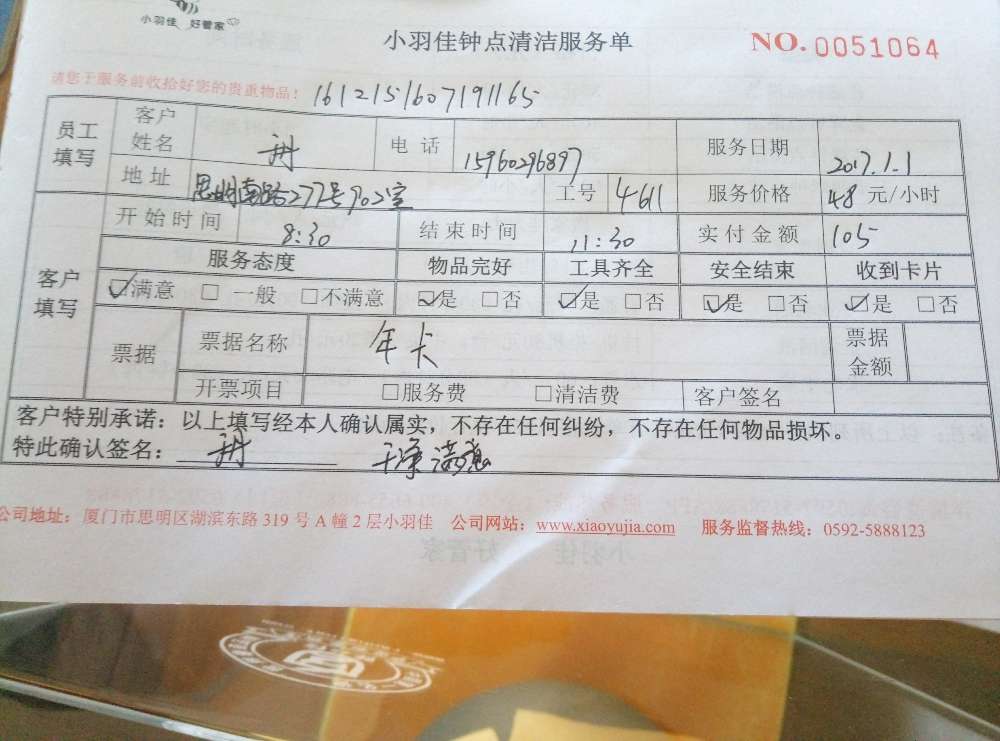 小羽佳 好管家
小羽佳钟点清洁服务单
NO. 0051064
请您于服务前收拾好您的贵重物品! 1612151607191165
员工填写 客户姓名 电话 15960296897 服务日期 2017.1.1
地址 思明南路277号902室 工号 4611 服务价格 48 元/小时
客户填写 开始时间 8:30 结束时间 11:30 实付金额 105
服务态度 物品完好 工具齐全 安全结束 收到卡片
☑满意 □ 一般 □不满意 ☑是 □否 ☑是 □否 ☑是 □否 ☑是 □否
票据 票据名称 年卡 票据金额
开票项目 □服务费 □清洁费 客户签名
客户特别承诺：以上填写经本人确认属实，不存在任何纠纷，不存在任何物品损坏。
特此确认签名： 干净 满意
公司地址：厦门市思明区湖滨东路 319 号 A 幢 2 层小羽佳 公司网站：www.xiaoyujia.com 服务监督热线：0592-5888123